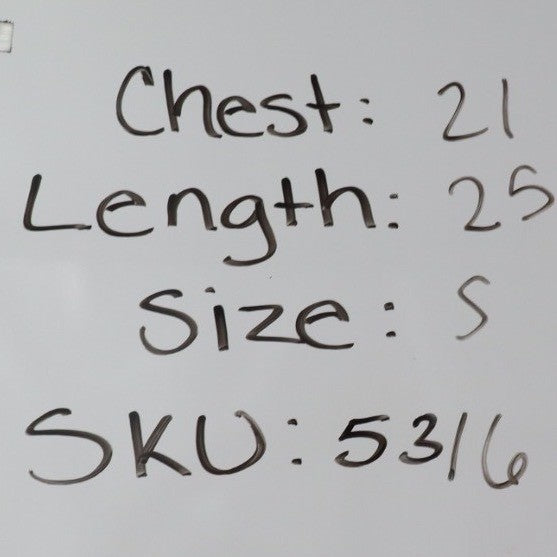 Chest: 21
Length: 25
Size: S
SKU: 5316